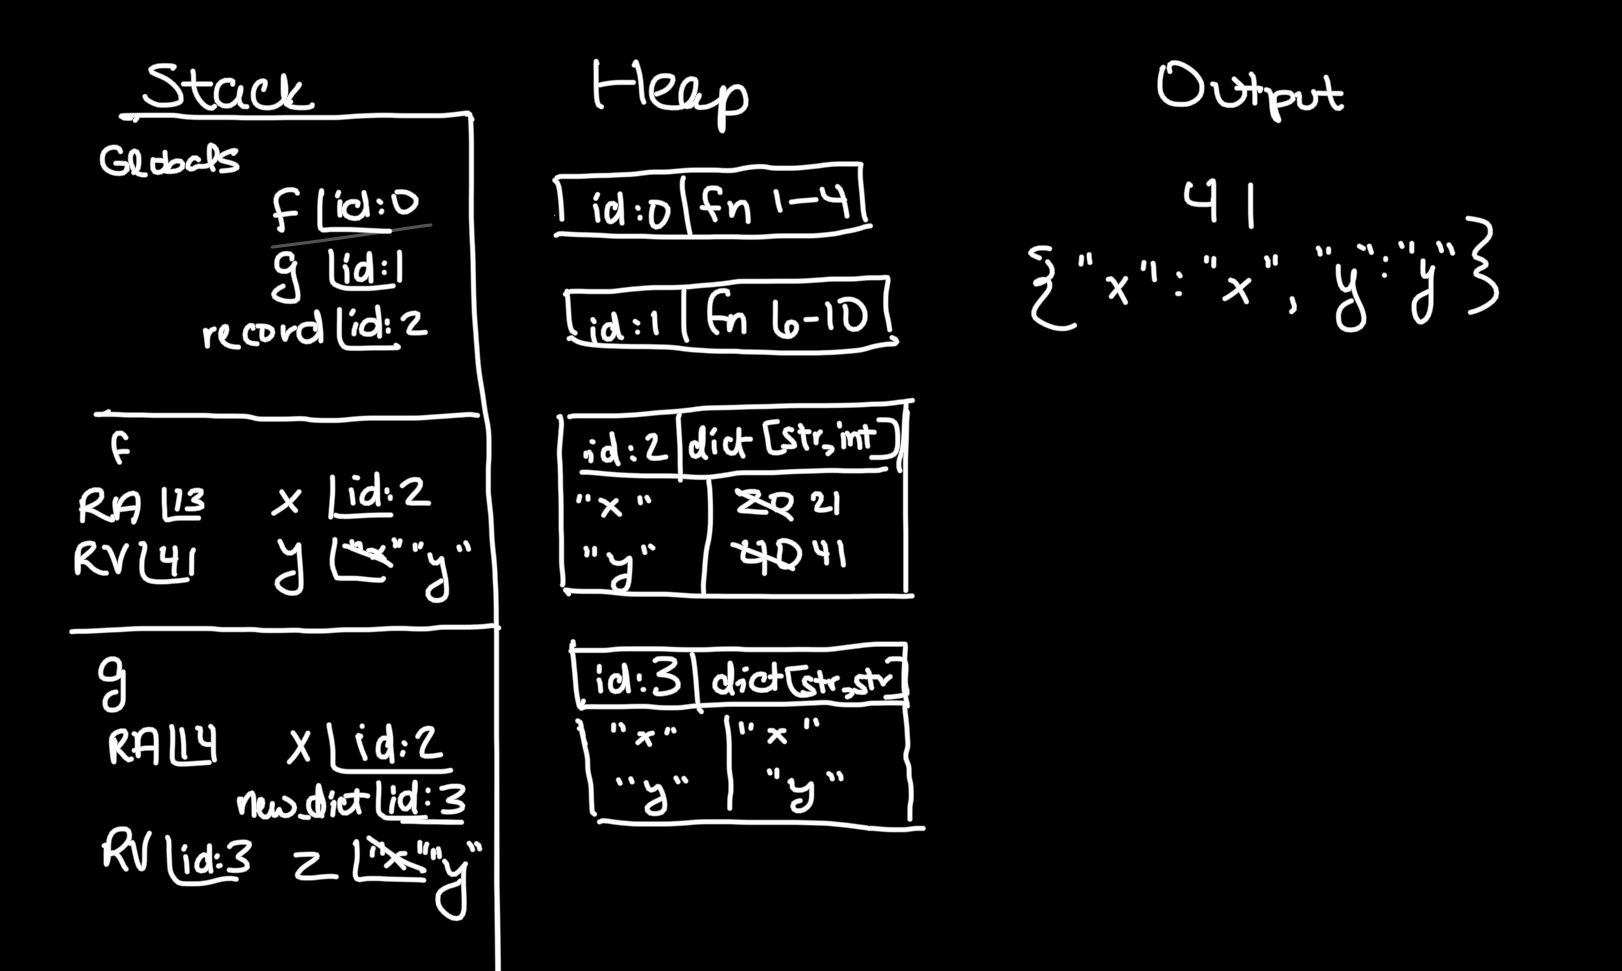 Stack
Globals
f id:0
g id:1
record id:2
f
RA 13 x id:2
RV 41 y "x" "y"
g
RA 14 x id:2
new_dict id:3
RV id:3 z "x" "y"
Heap
id:0 fn 1-4
id:1 fn 6-10
id:2 dict[str,int]
"x" 20 21
"y" 40 41
id:3 dict[str,str]
"x" "x"
"y" "y"
Output
41
{"x":"x", "y":"y"}